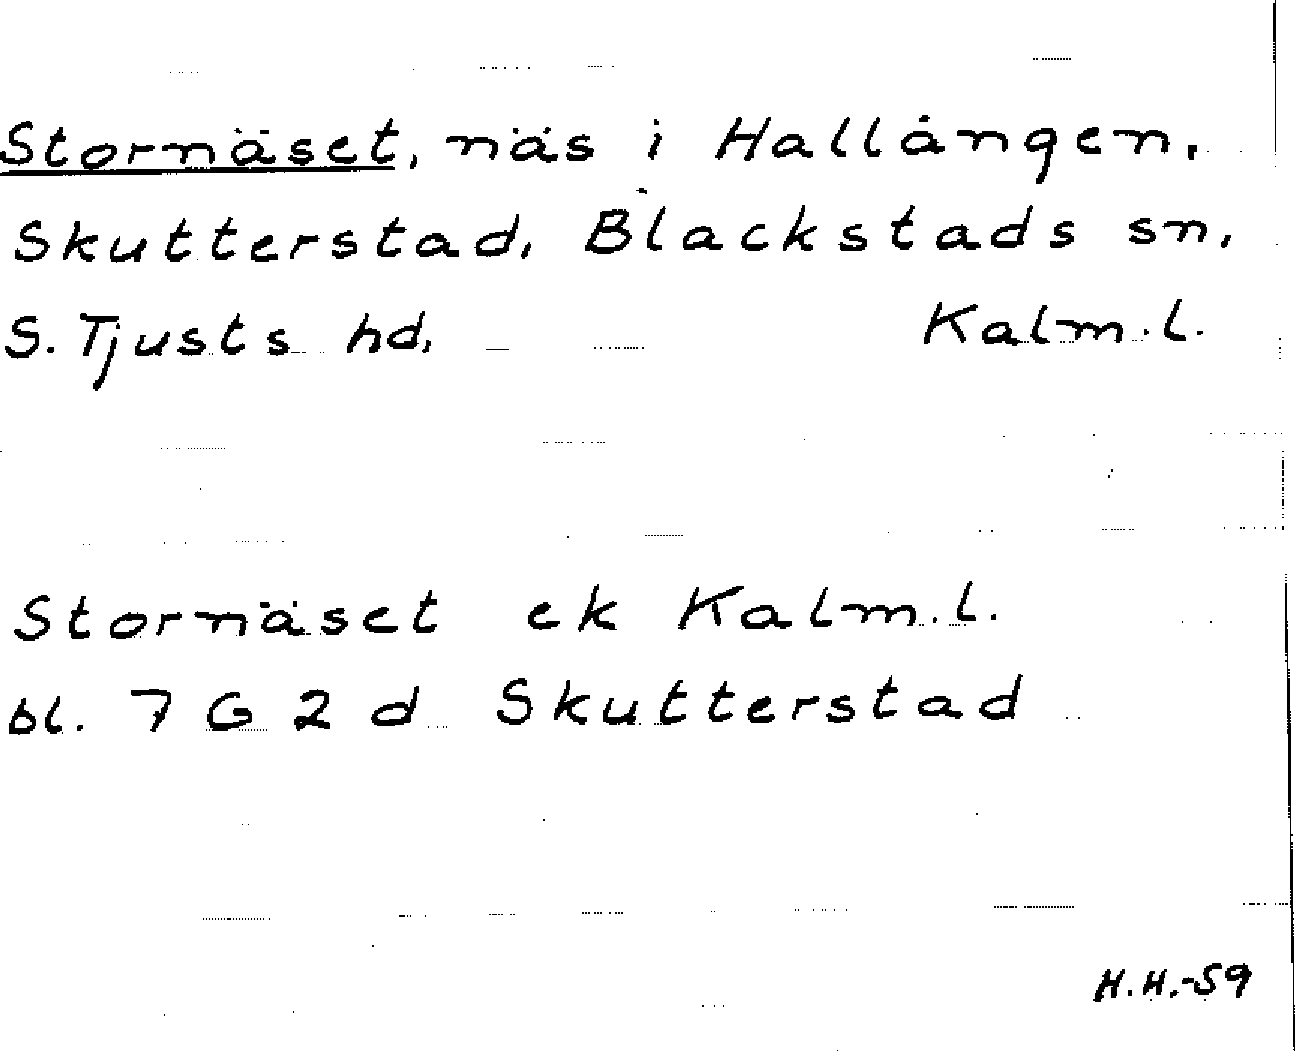 Stornäset, näs i Hallången,
Skutterstad, Blackstads sn,
S. Tjusts hd, Kalm.l.
Stornäset ek Kalm.l.
bl. 7 G 2 d Skutterstad
H.H.-59